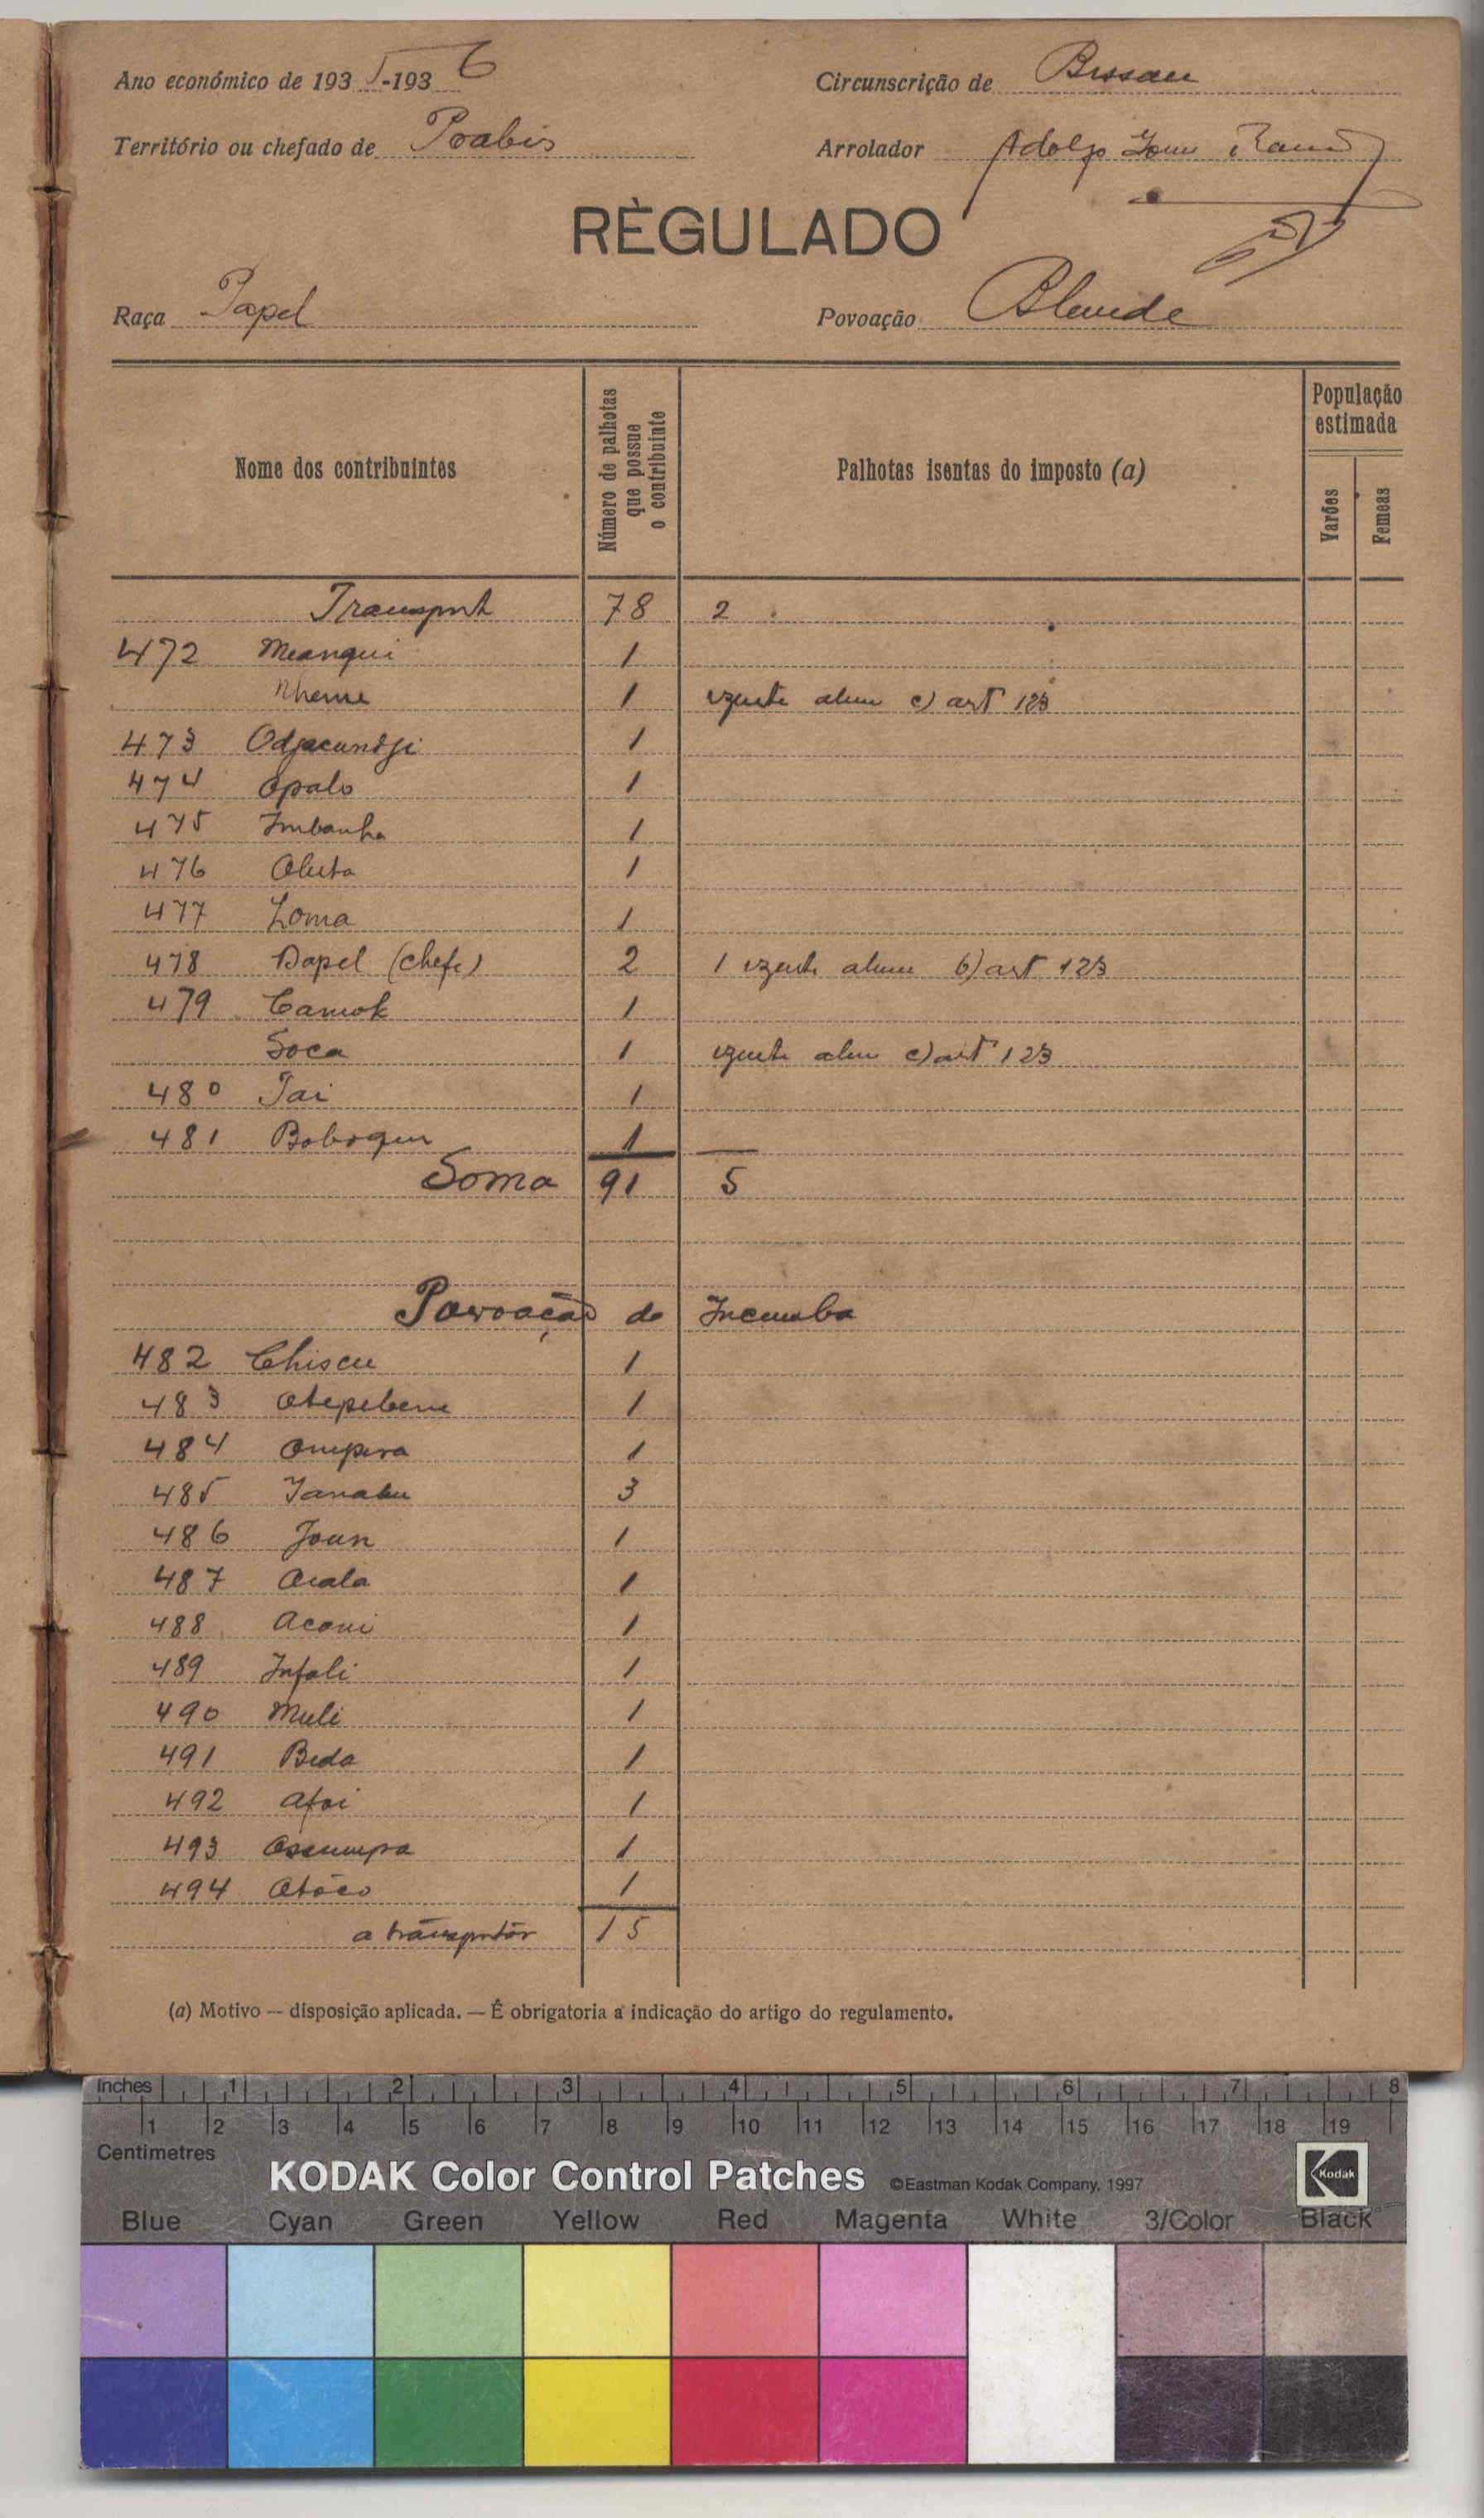 Ano económico de 1935-1936
Circunscrição de Bissau
Território ou chefado de Prabis
Arrolador Adolfo
RÈGULADO
Raça Papel
Povoação Blemde
Nome dos contribuintes
Número de palhotas que possue o contribuinte
Palhotas isentas do imposto (a)
População estimada
Varões
Femeas
Transport 78 2
472 Meanqui 1
Nheme 1 izente alim c) art 123
473 Odjacundji 1
474 Opalo 1
475 Imbanha 1
476 Oluta 1
477 Loma 1
478 Dapel (chefe) 2 1 izente alim b) art 123
479 Camok 1
Soca 1 izente alim c) art 123
480 Jai 1
481 Boboqui 1
Soma 91 5
Povoação de Incumba
482 Chiscu 1
483 1
484 Ompera 1
485 3
486 Joun 1
487 Ocala 1
488 Aconi 1
489 Infali 1
490 Muli 1
491 Beda 1
492 Afoi 1
493 Ossumpa 1
494 Otóco 1
a transportar 15
(a) Motivo — disposição aplicada. — É obrigatoria a indicação do artigo do regulamento.
Inches 1 2 3 4 5 6 7 8
1 2 3 4 5 6 7 8 9 10 11 12 13 14 15 16 17 18 19
Centimetres
KODAK Color Control Patches ©Eastman Kodak Company, 1997 Kodak
Blue Cyan Green Yellow Red Magenta White 3/Color Black